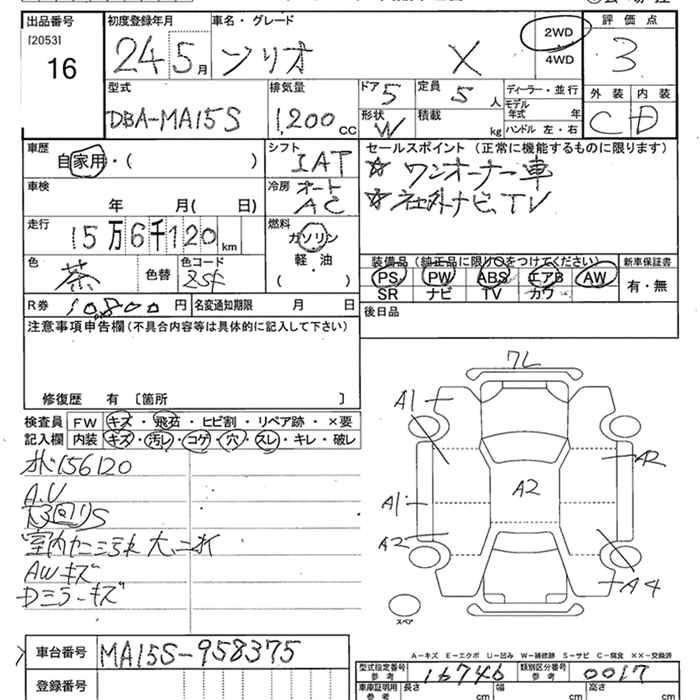 出品番号 初度登録年月 車名・グレード 2WD 4WD 評価点
[2053] 16 24 5月 ソリオ X 3
型式 排気量 ドア 5 定員 5人 ディーラー・並行 外装 内装
DBA-MA15S 1,200cc 形状 W 積載 kg モデル年式 年 ハンドル 左・右 C D
車歴 シフト セールスポイント(正常に機能するものに限ります)
自家用・( ) IAT ☆ワンオーナー車
車検 冷房 オート ☆社外ナビ、TV
年 月( 日) AC
走行 燃料
15万6千120km ガソリン
軽・油
( )
色 色替 色コード 装備品(純正品に限り○をつけてください) 新車保証書
茶 ZSF PS PW ABS エアB AW 有・無
SR ナビ TV カワ
R券 10,800円 名変通知期限 月 日 後日品
注意事項申告欄(不具合内容等は具体的に記入して下さい)
修復歴 有 [箇所 ]
検査員 FW キズ・飛石・ヒビ割・リペア跡・×要
記入欄 内装 キズ・汚レ・コゲ・穴・スレ・キレ・破レ
156120
A.U
AWキズ
Dミラーキズ
7L
A1
A2
A2
A1
A2
A4
スペア
A-キズ E-エクボ U-凹み W-補修跡 S-サビ C-腐食 XX-交換済
車台番号 MA15S-958375 型式指定番号 参考 16746 類別区分番号 参考 0017
登録番号 車庫証明用 参考 長さ cm 幅 cm 高さ cm